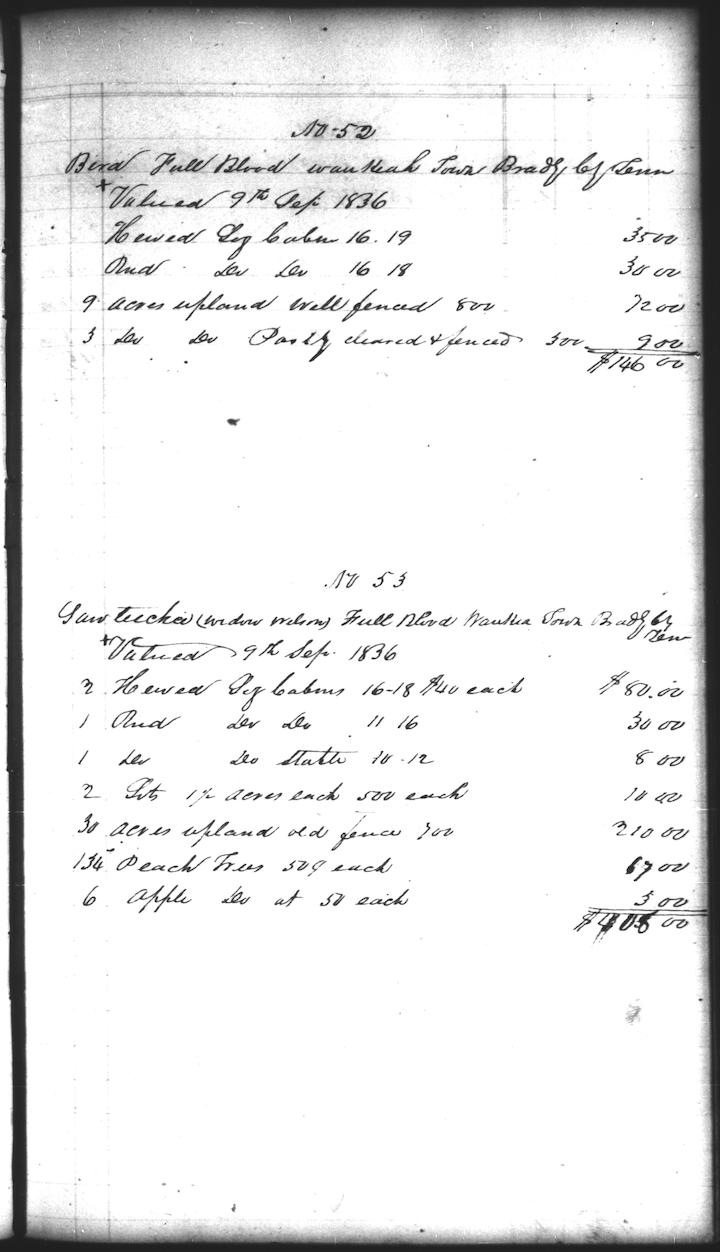 No 52
Bird Full Blood Waukeah Town Brad'y Cy Tenn
+ Valued 9th Sep 1836
Hewed Log Cabin 16.19 35 00
Rud Do Do 16 18 30 00
9 acres upland well fenced 800 72 00
3 Do Do Partly cleared & fenced 300 9 00
$146 00
No 53
(widow Wilson) Full Blood Waukea Town Brad'y Cy
Tenn
+ Valued 9th Sep. 1836
2 Hewed Log Cabins 16-18 $40 each $80.00
1 Rud Do Do 11 16 30 00
1 Do Do stable 10-12 8 00
2 Lots 1/2 acres each 500 each 10 00
30 acres upland old fence 700 210 00
134 Peach Trees 50¢ each 67 00
6 Apple Do at 50 each 3 00
$408 00